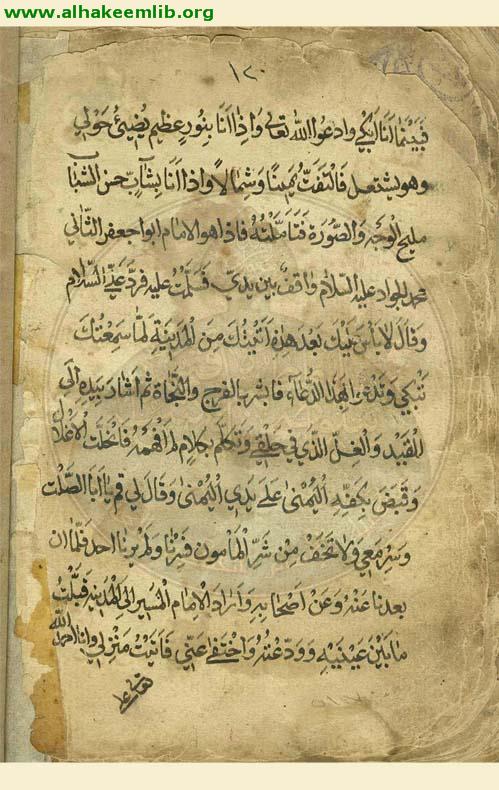 www.alhakeemlib.org
١٢٠
فبينما انا ابكي وادعوا الله تعالى واذا انا بنور عظيم يضيئ حولي
وهو يشتعل فالتفت يمينا وشمالا واذا انا بشاب حسن الشباب
مليح الوجه والصورة فتاملته فاذا هو الامام ابو جعفر الثاني
محمد الجواد عليه السلام واقف بين يدي فسلمت عليه فرد علي السلام
وقال لا باس عليك بعد هذا اتيتك من المدينة لما سمعتك
تبكي وتدعو بهذا الدعاء فابشر بالفرج والنجاة ثم اشار بيده الي
القيد والغل الذي في حلقي وتكلم بكلام لم افهمه فانحلت الاغلال
وقبض بكفه اليمنى على يدي اليمنى وقال لي قم يا ابا الصلت
وسر معي ولا تخف من شر المامون فسرنا ولم يرنا احد فلما ان
بعدنا عنه وعن اصحابه واراد الامام المسير الى المدينة قبلت
ما بين عينيه وودعته واختفى عني فاتيت منزلي وانا احمد الله
تعالى